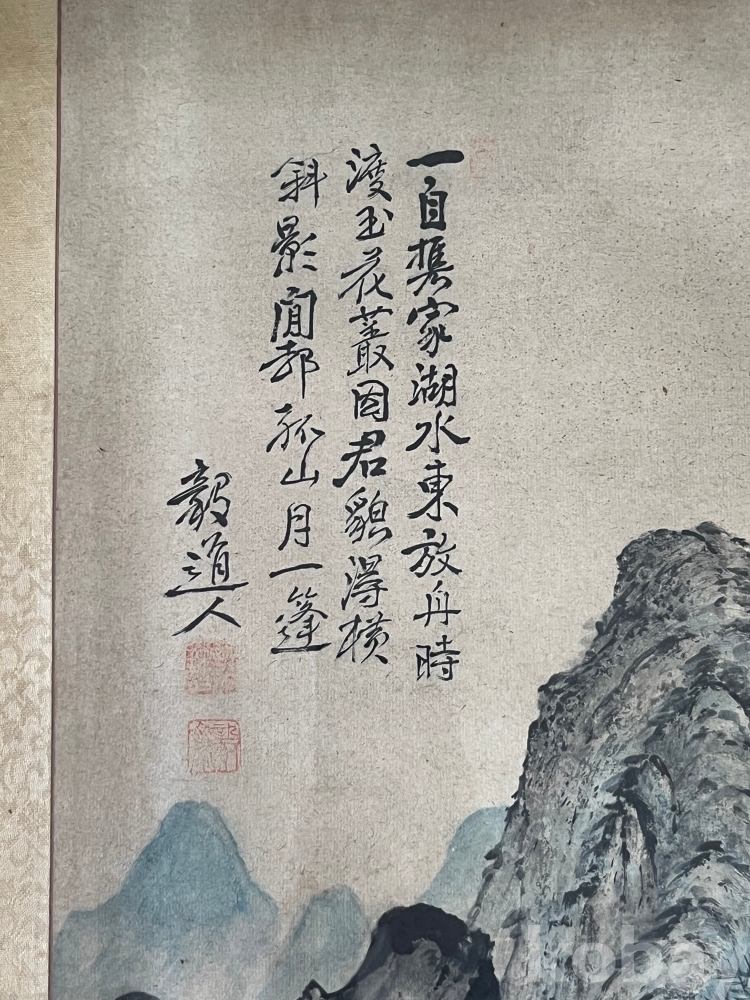 一自携家湖水東放舟時
渡玉花叢因君貌得橫
斜影閒却孤山月一篷
毅道人